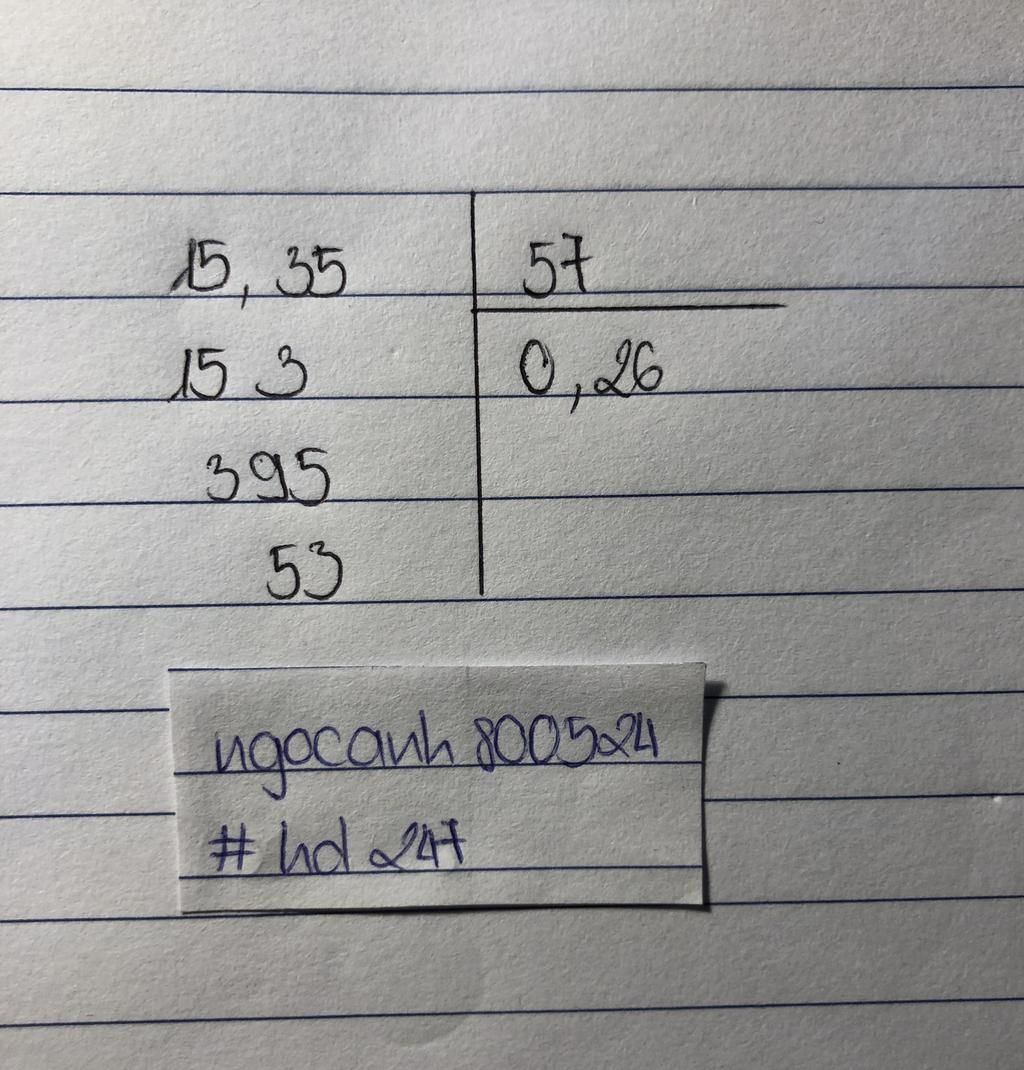 15,35 57
15 3 0,26
395
53
ngocanh 800524
# hd 247